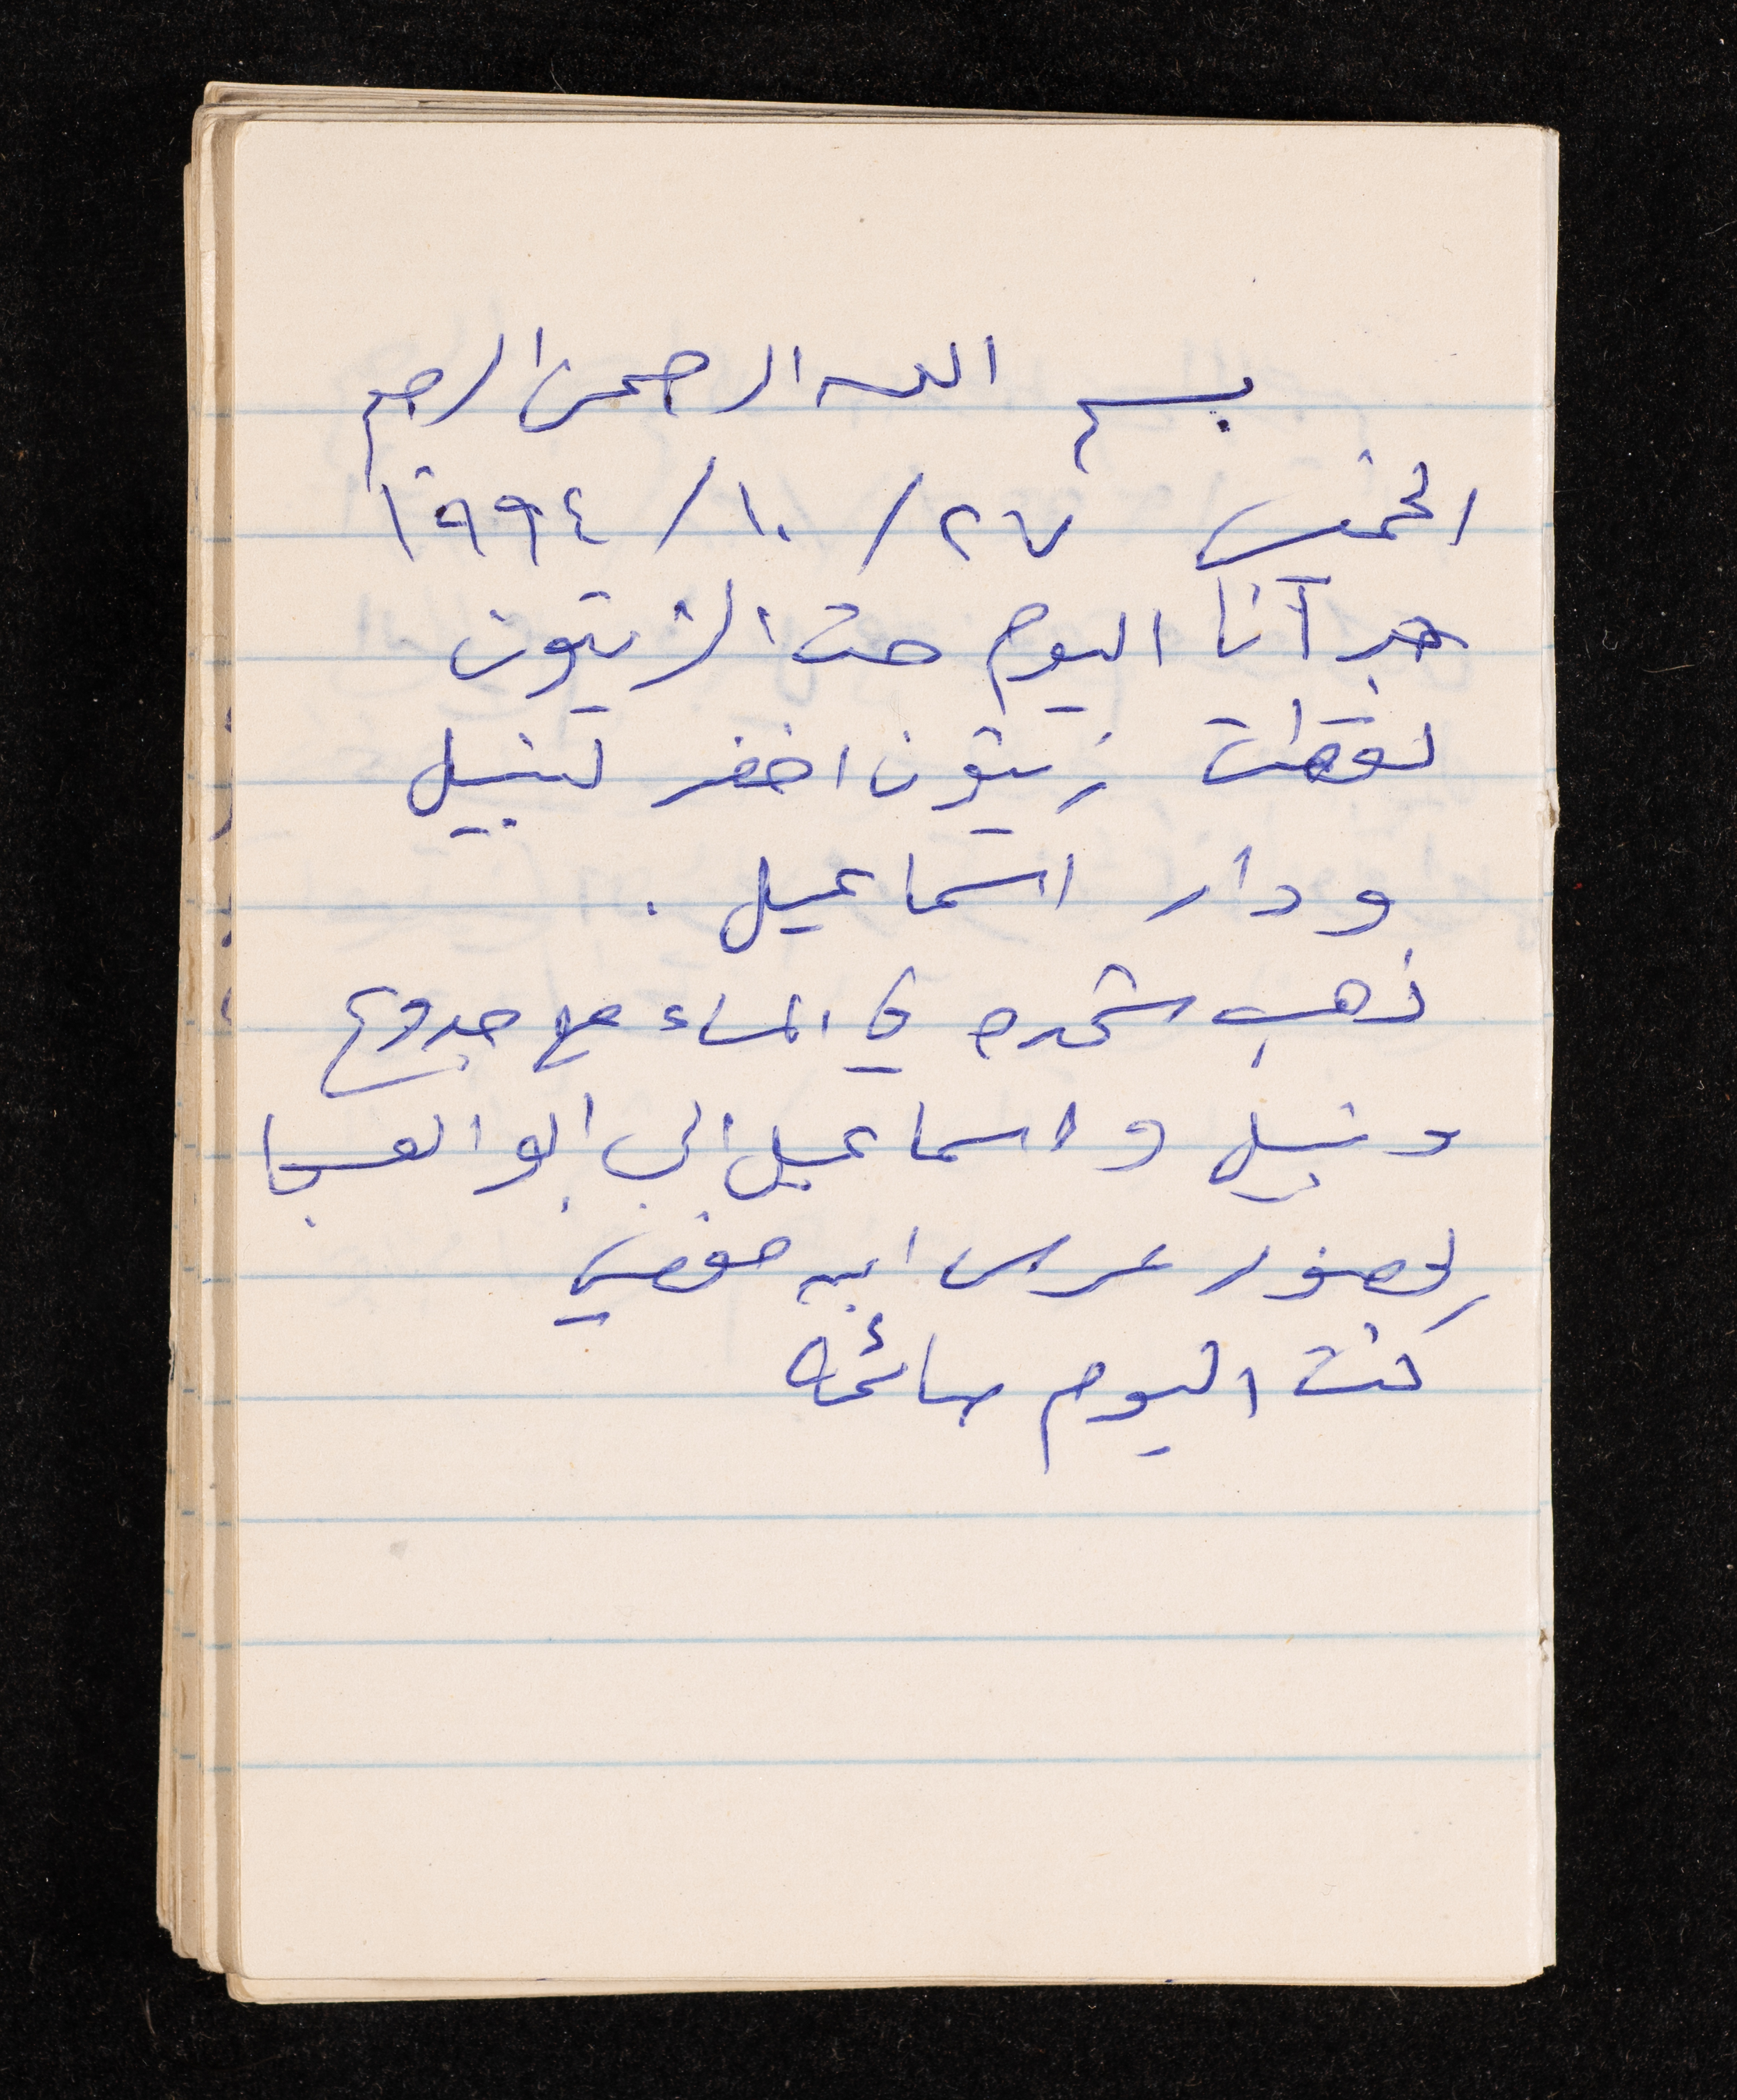 بسم الله الرحمن الرحيم
الخميس ٢٧ / ١٠ / ١٩٩٤
اليوم الزيتون
لقطت زيتون اخضر لنبيل
ودار اسماعيل .
ذهب شحده في المساء مع جدوع
ونبيل واسماعيل الى ابو العسجا
لحضور عرس ابنه
كنت اليوم صائمة